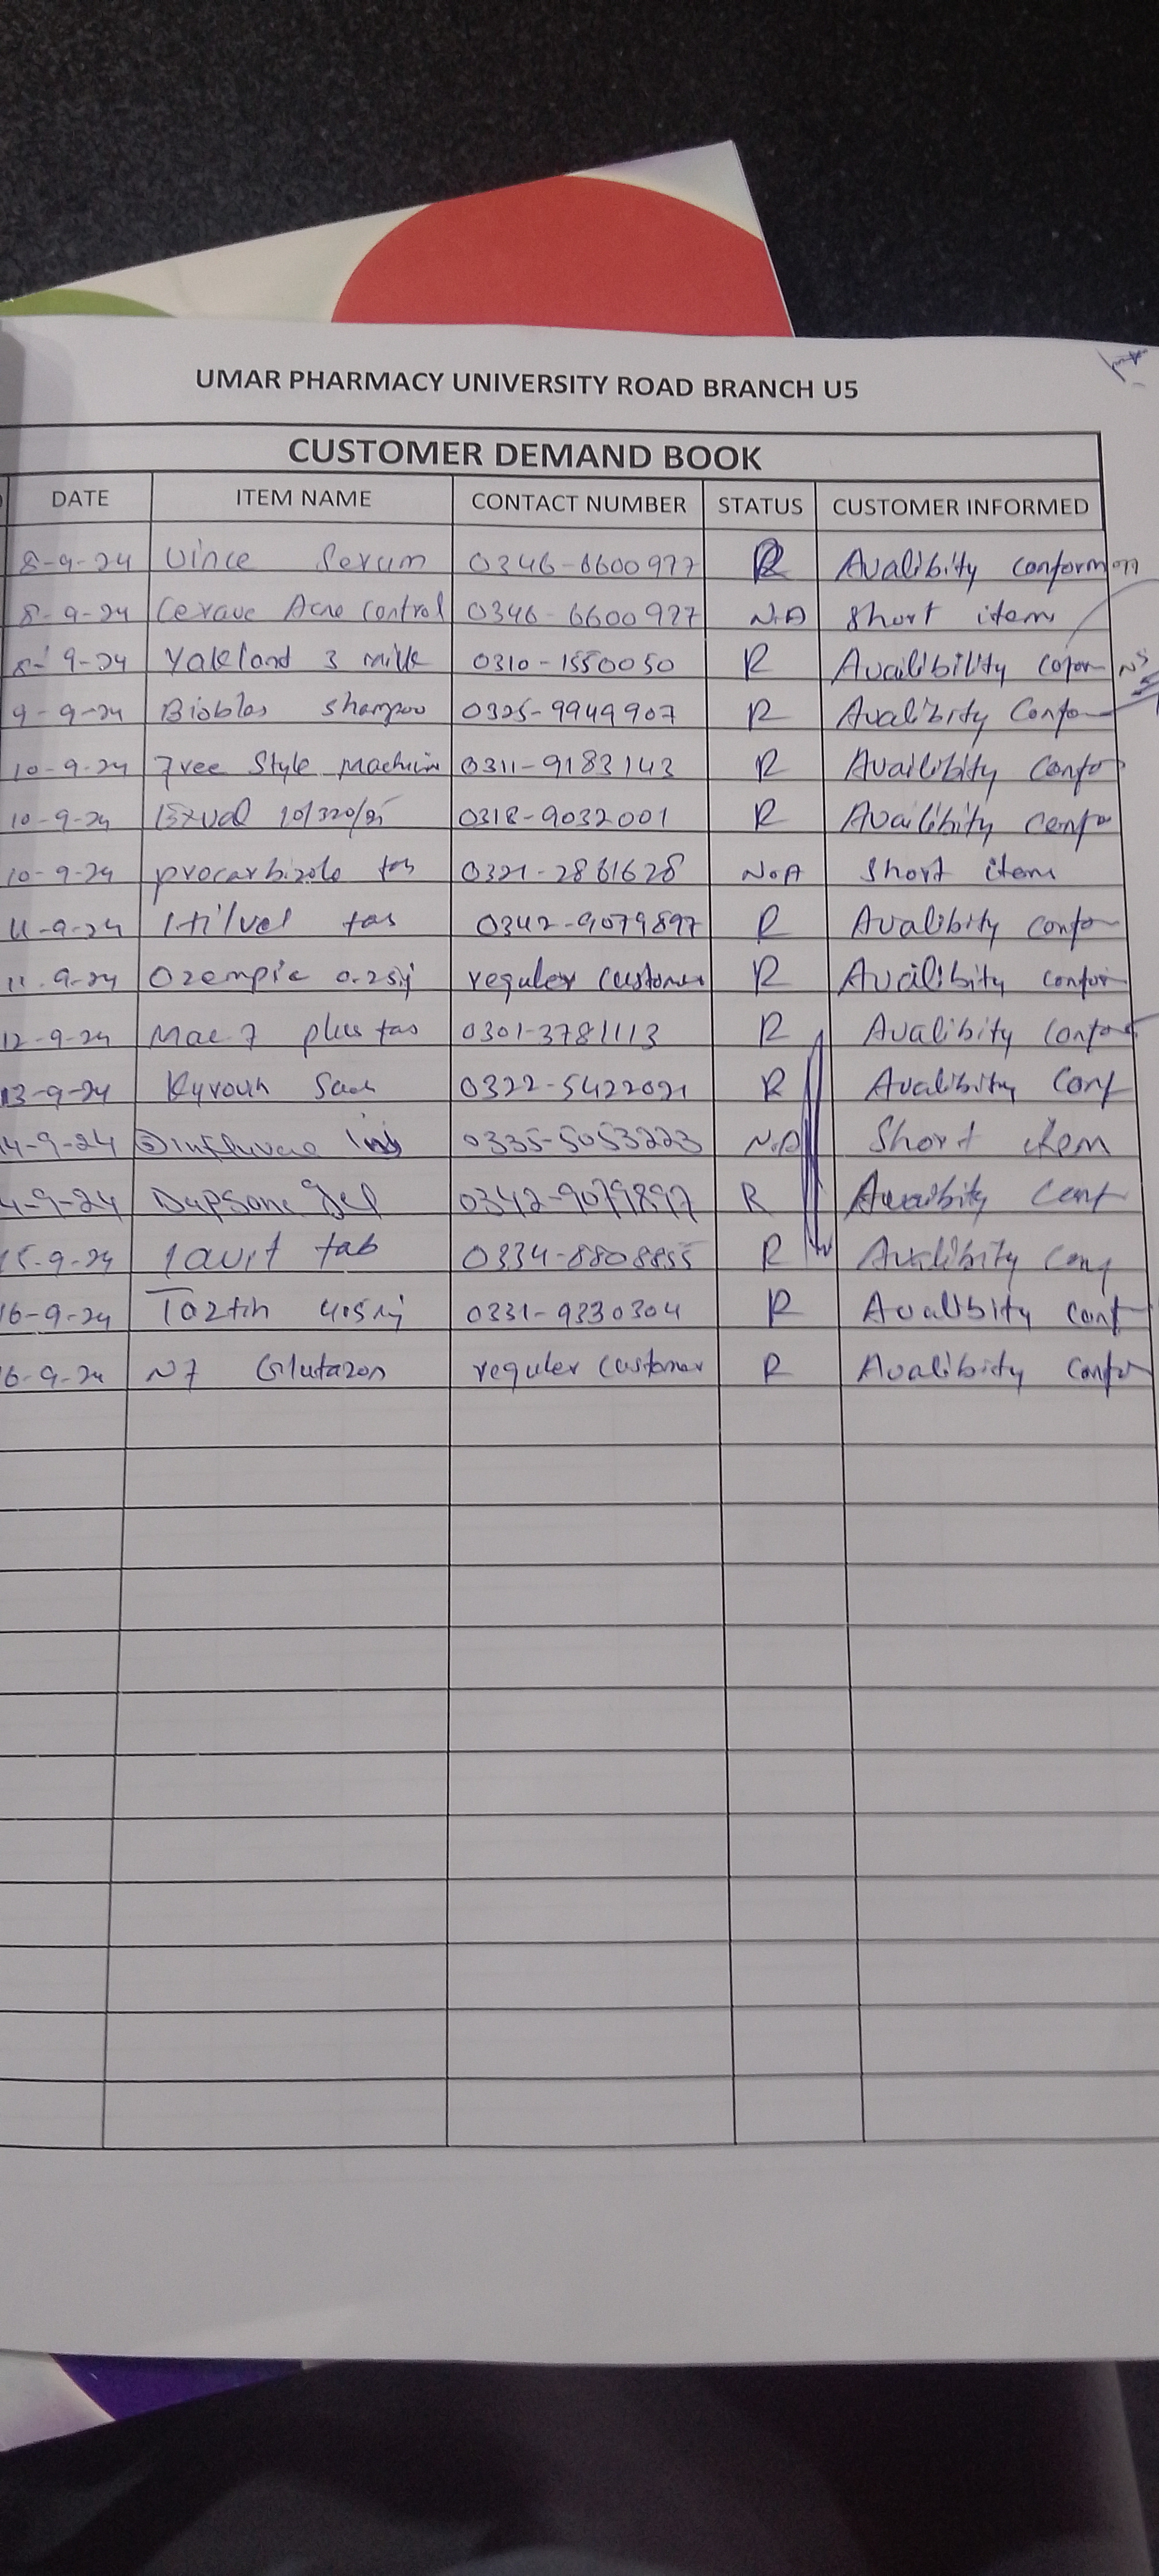 UMAR PHARMACY UNIVERSITY ROAD BRANCH U5
CUSTOMER DEMAND BOOK
DATE ITEM NAME CONTACT NUMBER STATUS CUSTOMER INFORMED
8-9-24 Vince Serum 0346-6600977 R Avalibity conform
8-9-24 Cerave Acne Control 0346-6600977 N.A Short item
8-9-24 Yakland 3 milk 0310-1550050 R Availibility
9-9-24 Bioblas Shampoo 0325-9949907 R Avalibity Confo
10-9-24 Free Style Machin 0311-9183143 R Availibity Confo
10-9-24 Exval 10/320/25 0318-9032001 R Availibity Confo
10-9-24 procarbizole tab 0321-2861628 N.A Short item
11-9-24 tab 0342-9079897 R Avalibity confo
11.9-24 Ozempic 0.25 reguler Customer R Availibity confor
12-9-24 Mac 7 plus tab 0301-3781113 R Avalibity Confo
13-9-24 0322-5422021 R Avalibity Conf
14-9-24 Influvac Inj 0335-5053223 N.A Short item
4-9-24 Dapsone Gel 0342-9079897 R Avaibity Conf
15-9-24 tab 0334-8808855 R Avalibity
16-9-24 0331-9330304 R Avalibity conf
6-9-24 N7 Glutazon reguler Customer R Avalibity Confo